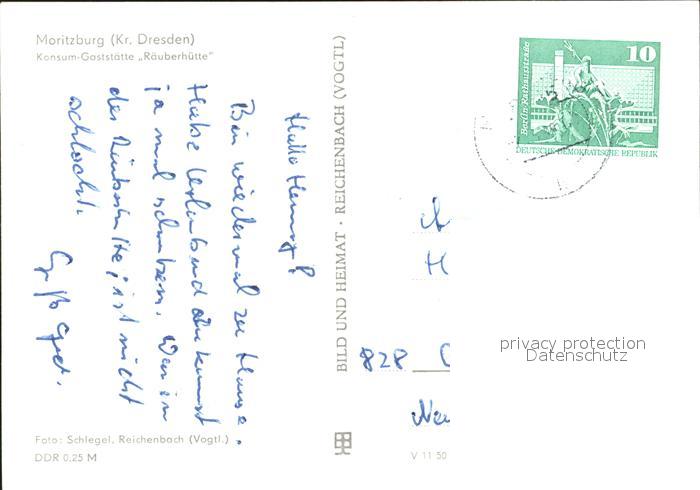 Moritzburg (Kr. Dresden)
Konsum-Gaststätte „Räuberhütte"
Hallo Henry!
Bin wieder mal zu Hause.
Habe Urlaub und du kannst
ja mal schreiben. War in
der Räuberhütte, ist nicht
schlecht.
Gruß
BILD UND HEIMAT · REICHENBACH (VOGTL)
10
Berlin, Rathausstraße
DEUTSCHE DEMOKRATISCHE REPUBLIK
H
828
privacy protection
Datenschutz
Foto: Schlegel, Reichenbach (Vogtl.)
DDR 0,25 M
V 11 50